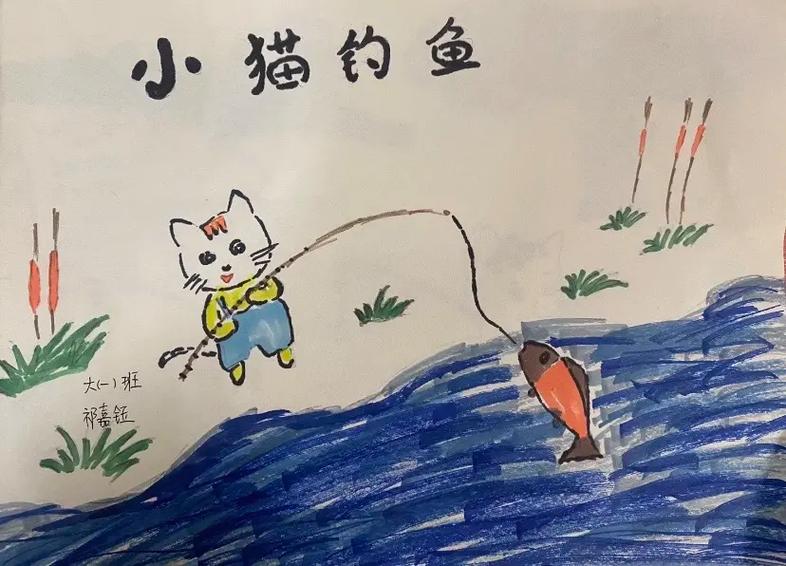 小猫钓鱼
大(一)班
祁嘉钰